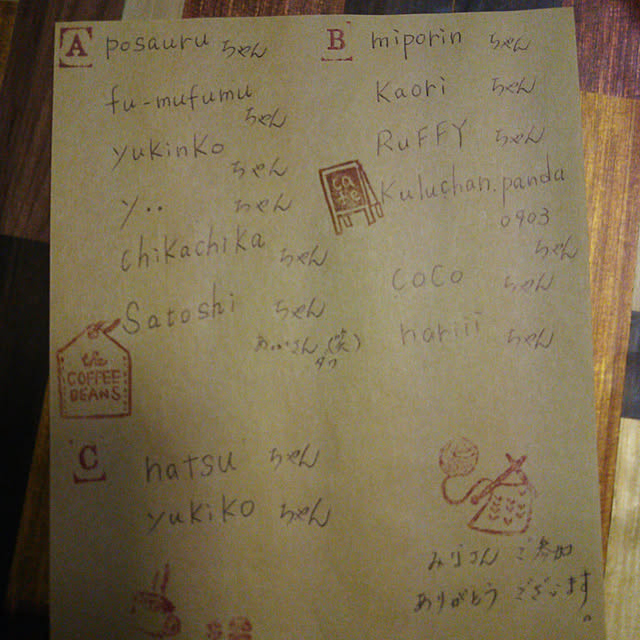 A posauru ちゃん
fu-mufumu
ちゃん
yukinko
ちゃん
y・・ ちゃん
chikachika ちゃん
Satoshi ちゃん
COFFEE
BEANS
B miporin ちゃん
Kaori ちゃん
RuFFY ちゃん
Kuluchan.panda
0903
ちゃん
COCO ちゃん
nariii ちゃん
C natsu ちゃん
yukiko ちゃん
みなさん ご参加
ありがとう ございます。